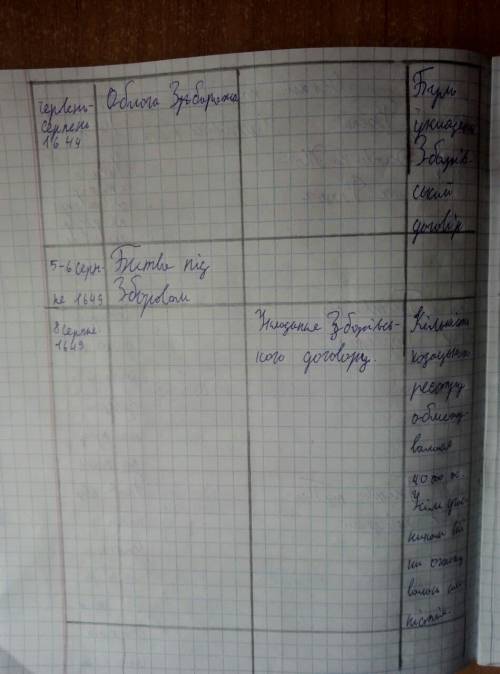 Червень-
серпень
1649
Облога Збаража
Були
укладен
Зборів-
ський
договір
5-6 серп-
ня 1649
Битва під
Зборовом
8 серпня
1649
Укладання Зборівсь-
кого договору.
Кількість
козацького
реєстру
обмежу-
валася
40
Усім учас-
никам